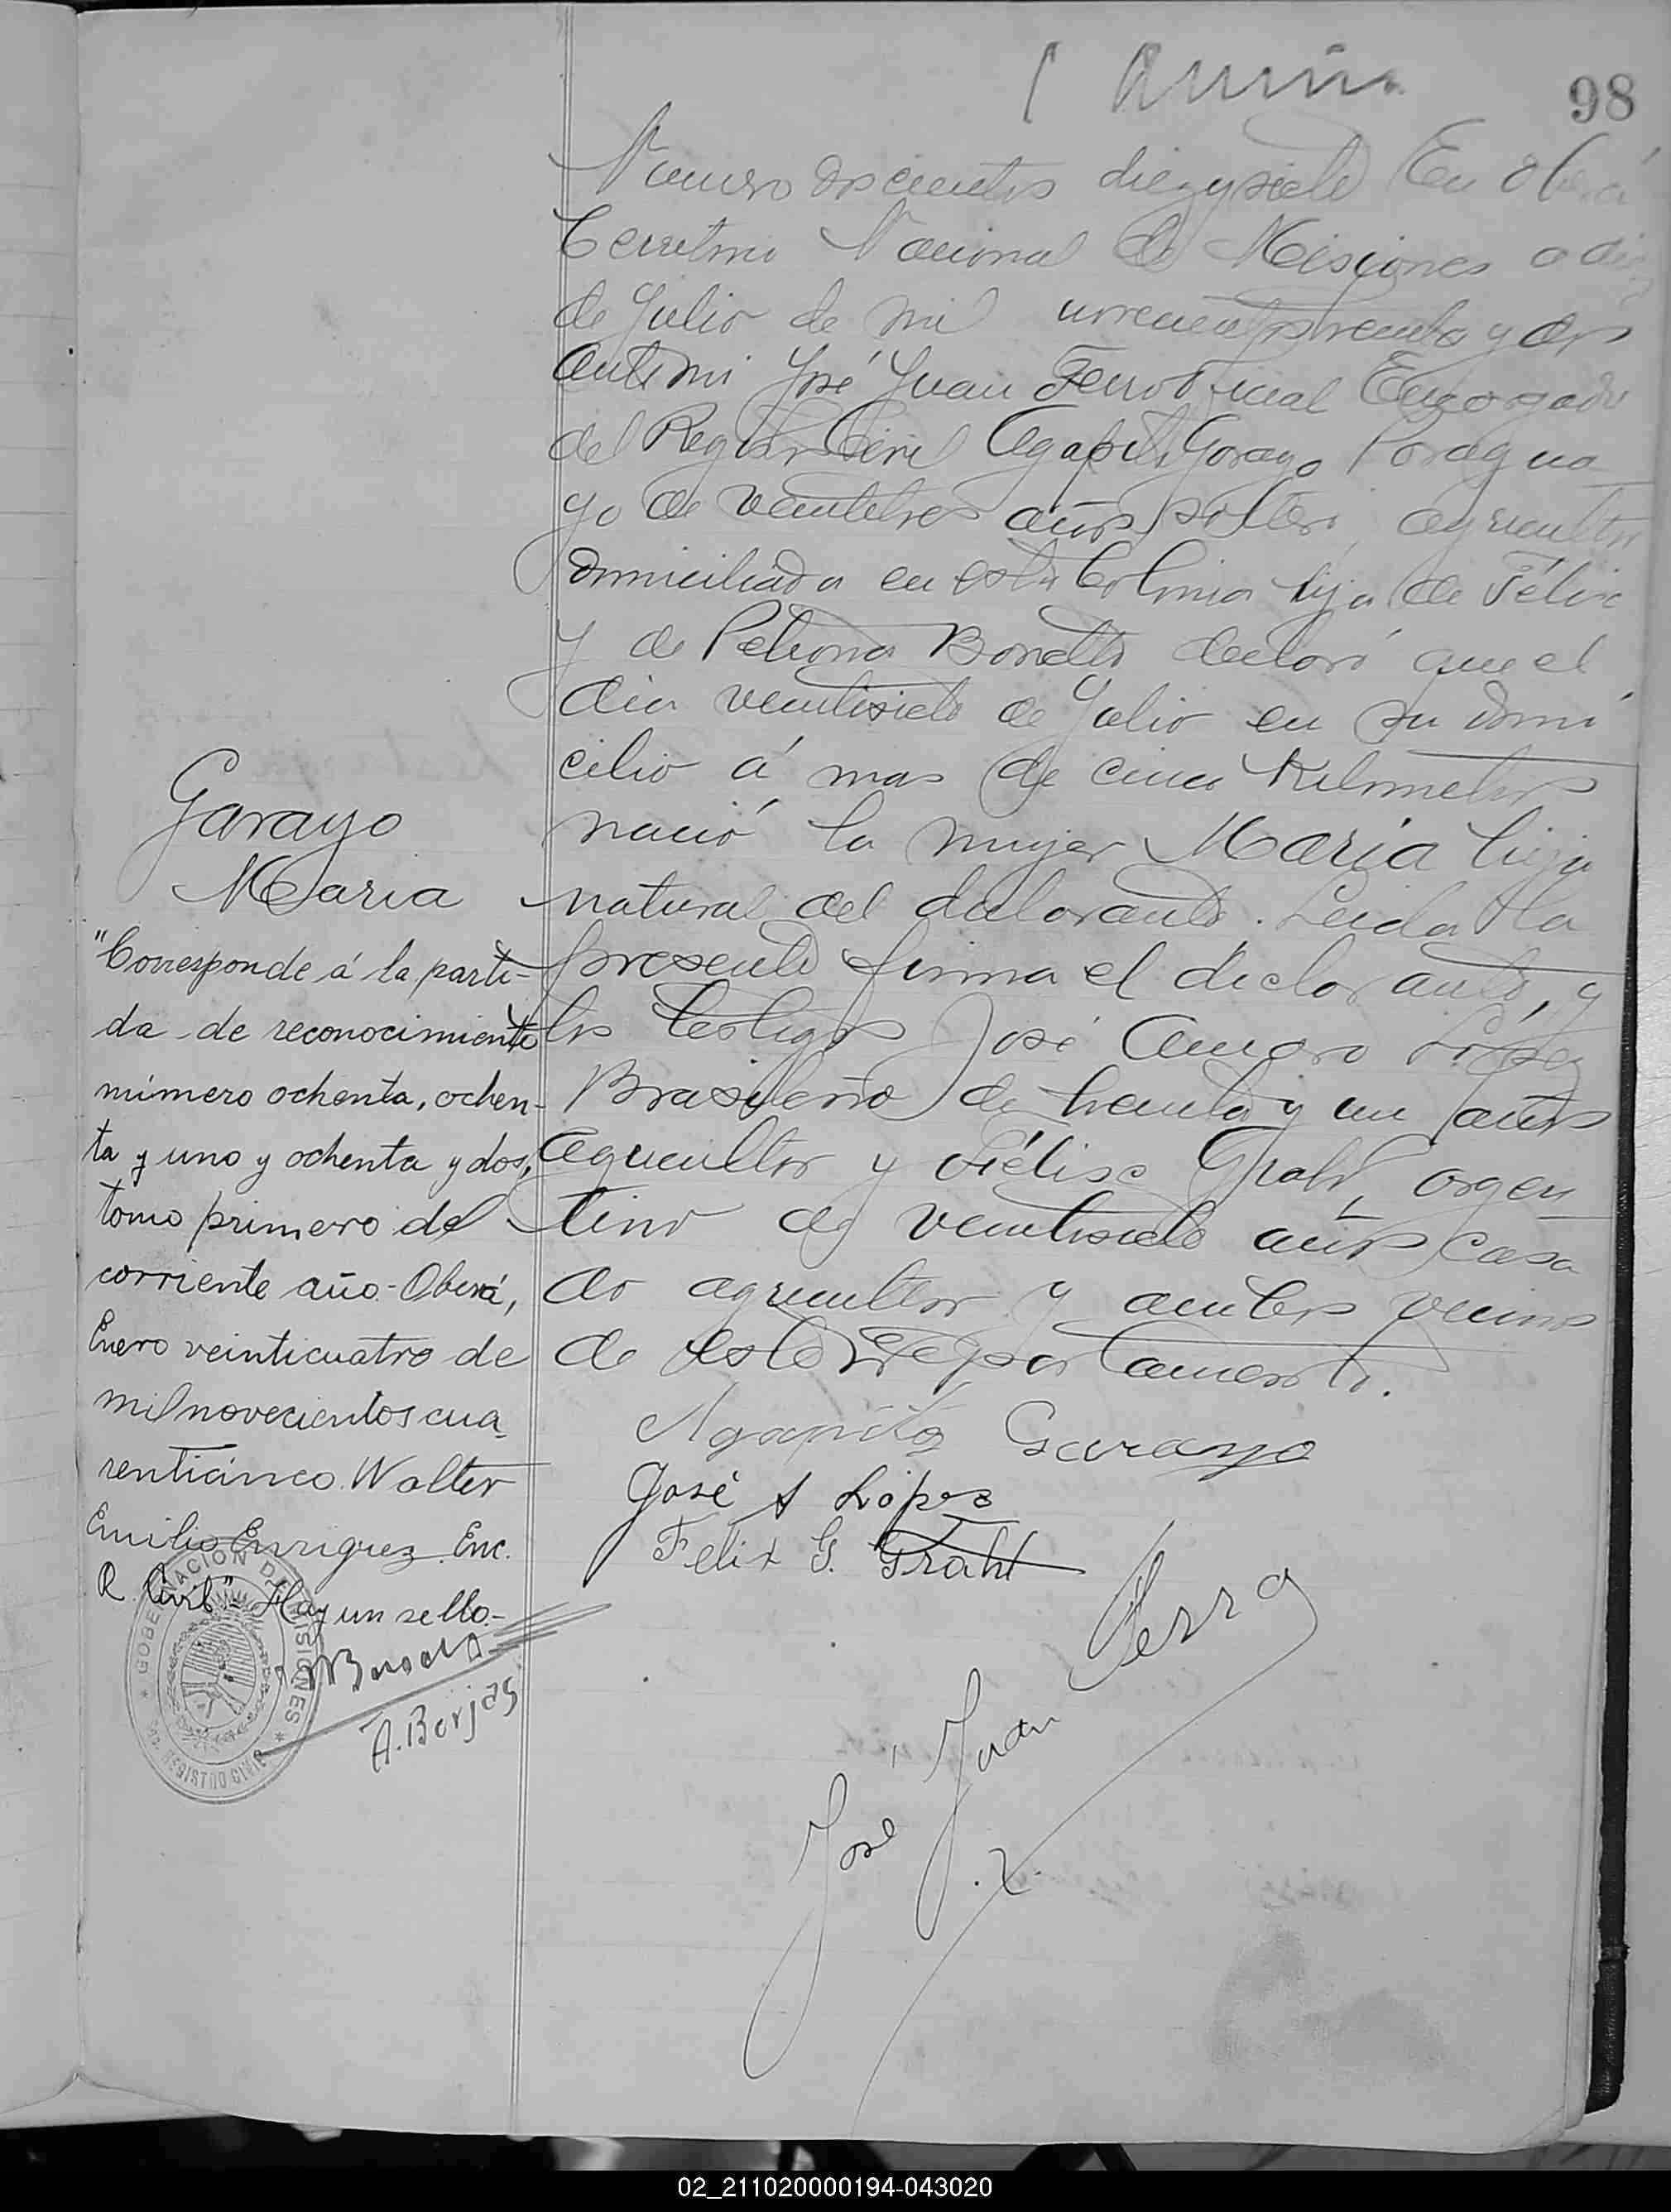 98
Numero doscientos diezysiete En Oberá
Territorio Nacional de Misiones a
de Julio de mil novecientos treinta y dos
ante mi José Juan Ferro Oficial Encargado
del Registro Civil Agapito Garayo Paragua
yo de veintitres años soltero, agricultor
domiciliado en esta Colonia hijo de Félix
y de Petrona declaró que el
dia veintisiete de Julio en su domi
cilio á mas de cinco Kilometros
nació la mujer Maria hija
natural del declarante. Leida la
presente firma el declarante, y
los testigos José Amaro López
Brasileño de treinta y un años
agricultor y Félix Grahl, argen
tino de veintisiete años casa
do agricultor y ambos vecinos
de este Departamento.
Agapito Garayo
José A López
Felix G. Grahl
José Juan Ferro
Garayo
Maria
"Corresponde á la parti-
da de reconocimiento
número ochenta, ochen-
ta y uno y ochenta y dos,
tomo primero del
corriente año - Oberá,
Enero veinticuatro de
mil novecientos cua
renticinco. Walter
Emilio Enriquez. Enc.
R. Civil" - Hay un sello.-
A. Borjas
GOBERNACION DE MISIONES
REGISTRO CIVIL
02_211020000194-043020